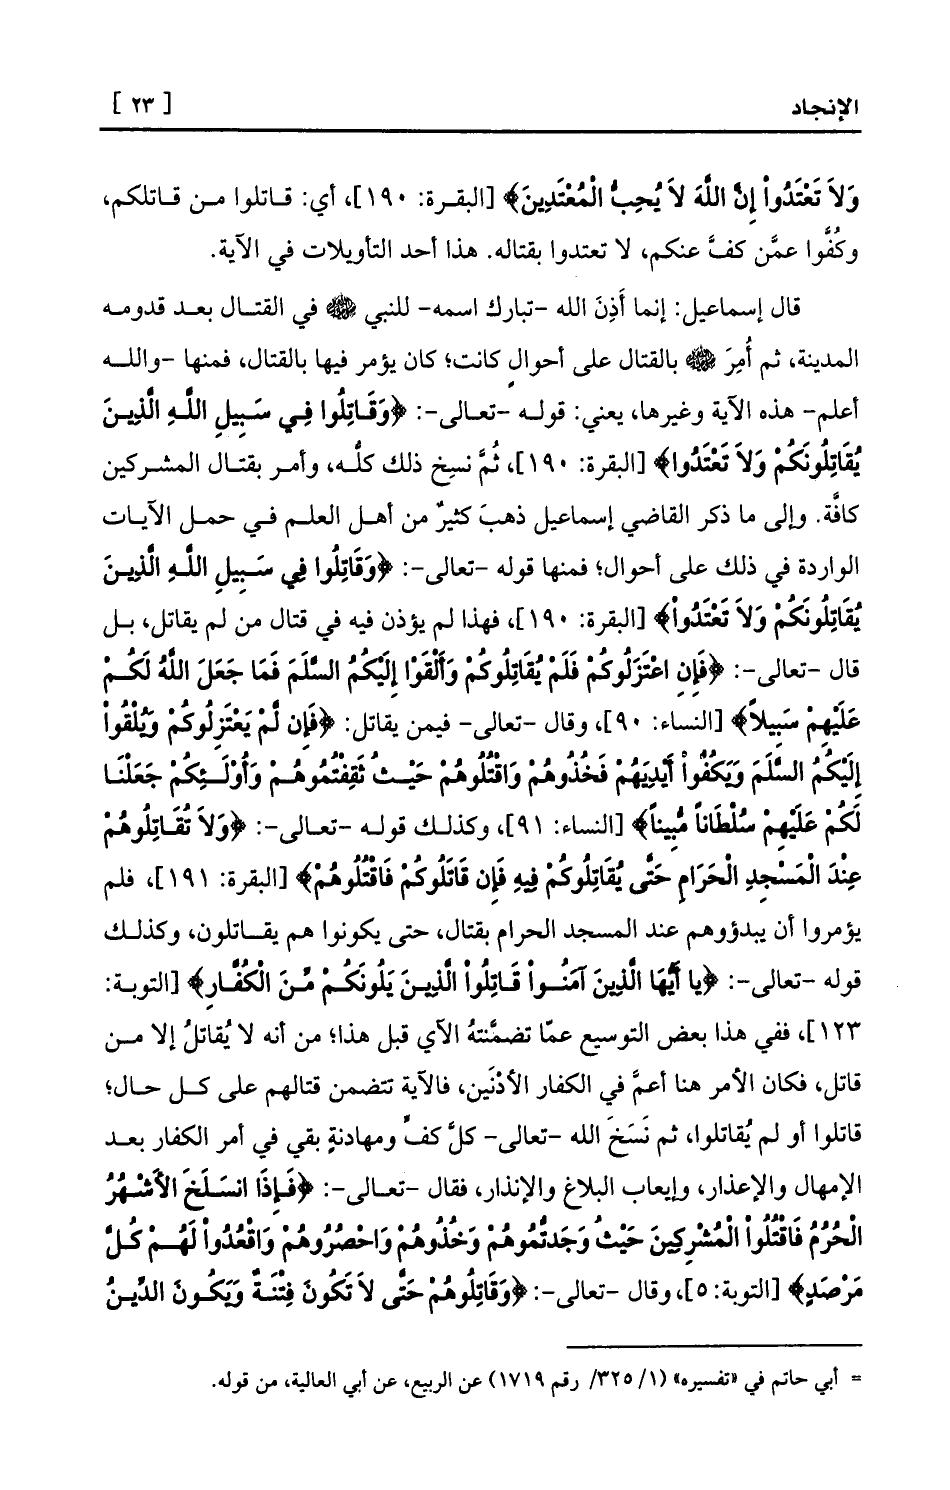 الإنجاد [ ٢٣ ]
وَلاَ تَعْتَدُواْ إِنَّ اللَّهَ لاَ يُحِبُّ الْمُعْتَدِينَ﴾ [البقـرة: ١٩٠]، أي: قـاتلوا مـن قـاتلكم،
وكُفُّوا عمَّن كفَّ عنكم، لا تعتدوا بقتاله. هذا أحد التأويلات في الآية.
قال إسماعيل: إنما أَذِنَ الله -تبارك اسمه- للنبي ﷺ في القتـال بعـد قدومـه
المدينة، ثم أُمِرَ ﷺ بالقتال على أحوالٍ كانت؛ كان يؤمر فيها بالقتال، فمنها -واللـه
أعلم- هذه الآية وغيرها، يعني: قولـه -تعـالى-: ﴿وَقَاتِلُوا فِـي سَـبِيلِ اللَّـهِ الَّذِيـنَ
يُقَاتِلُونَكُمْ وَلاَ تَعْتَدُوا﴾ [البقرة: ١٩٠]، ثُمَّ نسِخ ذلك كلُّـه، وأمـر بقتـال المشـركين
كافَّة. وإلى ما ذكر القاضي إسماعيل ذهبَ كثيرٌ من أهـل العلـم فـي حمـل الآيـات
الواردة في ذلك على أحوال؛ فمنها قوله -تعالى-: ﴿وَقَاتِلُوا فِي سَـبِيلِ اللَّـهِ الَّذِيـنَ
يُقَاتِلُونَكُمْ وَلاَ تَعْتَدُواْ﴾ [البقرة: ١٩٠]، فهذا لم يؤذن فيه في قتال من لم يقاتل، بـل
قال -تعالى-: ﴿فَإِنِ اعْتَزَلُوكُمْ فَلَمْ يُقَاتِلُوكُمْ وَأَلْقَوْا إِلَيْكُمُ السَّلَمَ فَمَا جَعَلَ اللَّهُ لَكُـمْ
عَلَيْهِمْ سَبِيلاً﴾ [النساء: ٩٠]، وقال -تعالى- فيمن يقاتل: ﴿فَإِن لَّمْ يَعْتَزِلُوكُمْ وَيُلْقُواْ
إِلَيْكُمُ السَّلَمَ وَيَكُفُّواْ أَيْدِيَهُمْ فَخُذُوهُمْ وَاقْتُلُوهُمْ حَيْـثُ ثَقِفْتُمُوهُـمْ وَأُوْلَــئِكُمْ جَعَلْنَـا
لَكُمْ عَلَيْهِمْ سُلْطَاناً مُّبِيناً﴾ [النساء: ٩١]، وكذلـك قولـه -تعـالى-: ﴿وَلاَ تُقَـاتِلُوهُمْ
عِنْدَ الْمَسْجِدِ الْحَرَامِ حَتَّى يُقَاتِلُوكُمْ فِيهِ فَإِن قَاتَلُوكُمْ فَاقْتُلُوهُمْ﴾ [البقرة: ١٩١]، فلم
يؤمروا أن يبدؤوهم عند المسجد الحرام بقتال، حتى يكونوا هم يقـاتلون، وكذلـك
قوله -تعالى-: ﴿يا أَيُّهَا الَّذِينَ آمَنُـواْ قَـاتِلُواْ الَّذِيـنَ يَلُونَكُـمْ مِّـنَ الْكُفَّـارِ﴾ [التوبـة:
١٢٣]، ففي هذا بعض التوسيع عمّا تضمَّنتهُ الآي قبل هذا؛ من أنه لا يُقاتلُ إلا مـن
قاتل، فكان الأمر هنا أعمَّ في الكفار الأدْنَين، فالآية تتضمن قتالهم على كـل حـال؛
قاتلوا أو لم يُقاتلوا، ثم نَسَخَ الله -تعالى- كلَّ كفٍّ ومهادنةٍ بقي في أمر الكفار بعـد
الإمهال والإعذار، وإيعاب البلاغ والإنذار، فقال -تعـالى-: ﴿فَـإِذَا انسَـلَخَ الأَشْـهُرُ
الْحُرُمُ فَاقْتُلُواْ الْمُشْرِكِينَ حَيْثُ وَجَدتُّمُوهُمْ وَخُذُوهُمْ وَاحْصُرُوهُمْ وَاقْعُدُواْ لَهُـمْ كُـلَّ
مَرْصَدٍ﴾ [التوبة: ٥]، وقال -تعالى-: ﴿وَقَاتِلُوهُمْ حَتَّى لاَ تَكُونَ فِتْنَـةٌ وَيَكُـونَ الدِّيـنُ
= أبي حاتم في «تفسيره» (١/ ٣٢٥/ رقم ١٧١٩) عن الربيع، عن أبي العالية، من قوله.